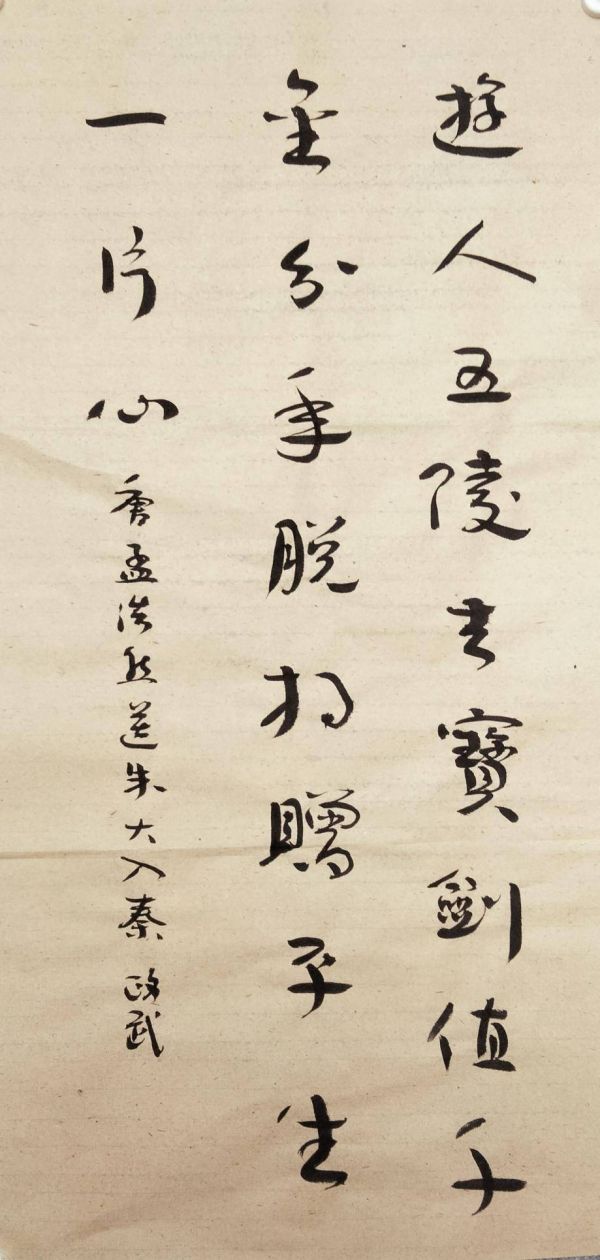 遊人五陵去寶劍值千
金分手脫相贈平生
一片心
唐孟浩然送朱大入秦 政武